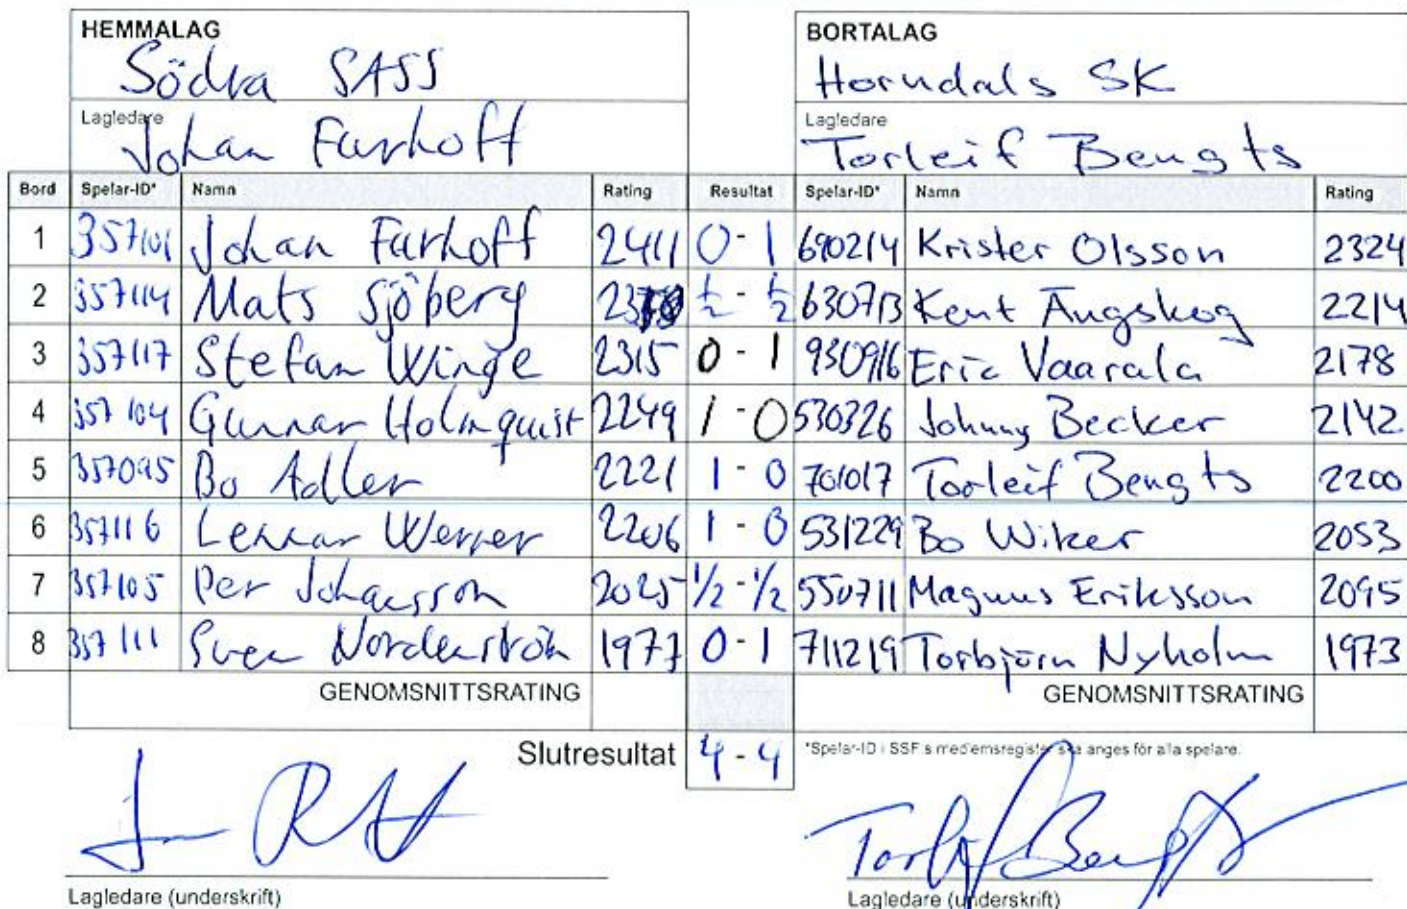 HEMMALAG BORTALAG
Södra SASS Horndals SK
Lagledare Lagledare
Johan Furhoff Torleif Bengts
Bord Spelar-ID* Namn Rating Resultat Spelar-ID* Namn Rating
1 357101 Johan Furhoff 2411 0 - 1 690214 Krister Olsson 2324
2 357114 Mats Sjöberg ½ - ½ 630713 Kent Ängskog 2214
3 357117 Stefan Winge 2315 0 - 1 930916 Eric Vaarala 2178
4 357104 Gunnar Holmquist 2249 1 - 0 530326 Johnny Becker 2142
5 357095 Bo Adler 2221 1 - 0 701017 Torleif Bengts 2200
6 357116 Lennar Werner 2206 1 - 0 531229 Bo Wiker 2053
7 357105 Per Johansson 2025 ½ - ½ 550711 Magnus Eriksson 2095
8 357111 Sven Nordenström 1977 0 - 1 711219 Torbjörn Nyholm 1973
GENOMSNITTSRATING GENOMSNITTSRATING
Slutresultat 4 - 4 *Spelar-ID i SSF:s medlemsregister ska anges för alla spelare.
Lagledare (underskrift) Lagledare (underskrift)